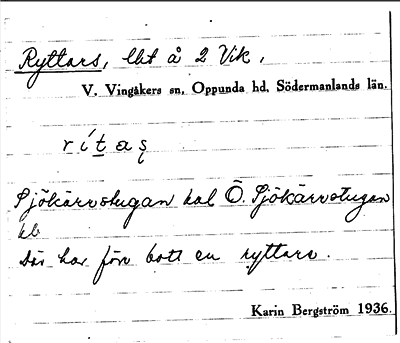 Ryttars, lht å 2 Vik,
V. Vingåkers sn, Oppunda hd, Södermanlands län.
rítas
Sjökärrstugan kal Ö. Sjökärrstugan
kb
där har förr bott en ryttare.
Karin Bergström 1936.